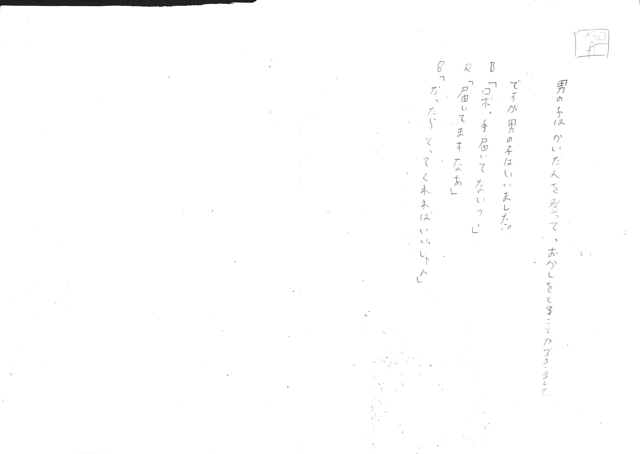 男の子はかいだんを登って、おかしをとることができました
ですが男の子はいいました。
B「ロボ、手届いてないっ。」
R「届いてますなあ」
B「なったらとってくれればいいじゃん」